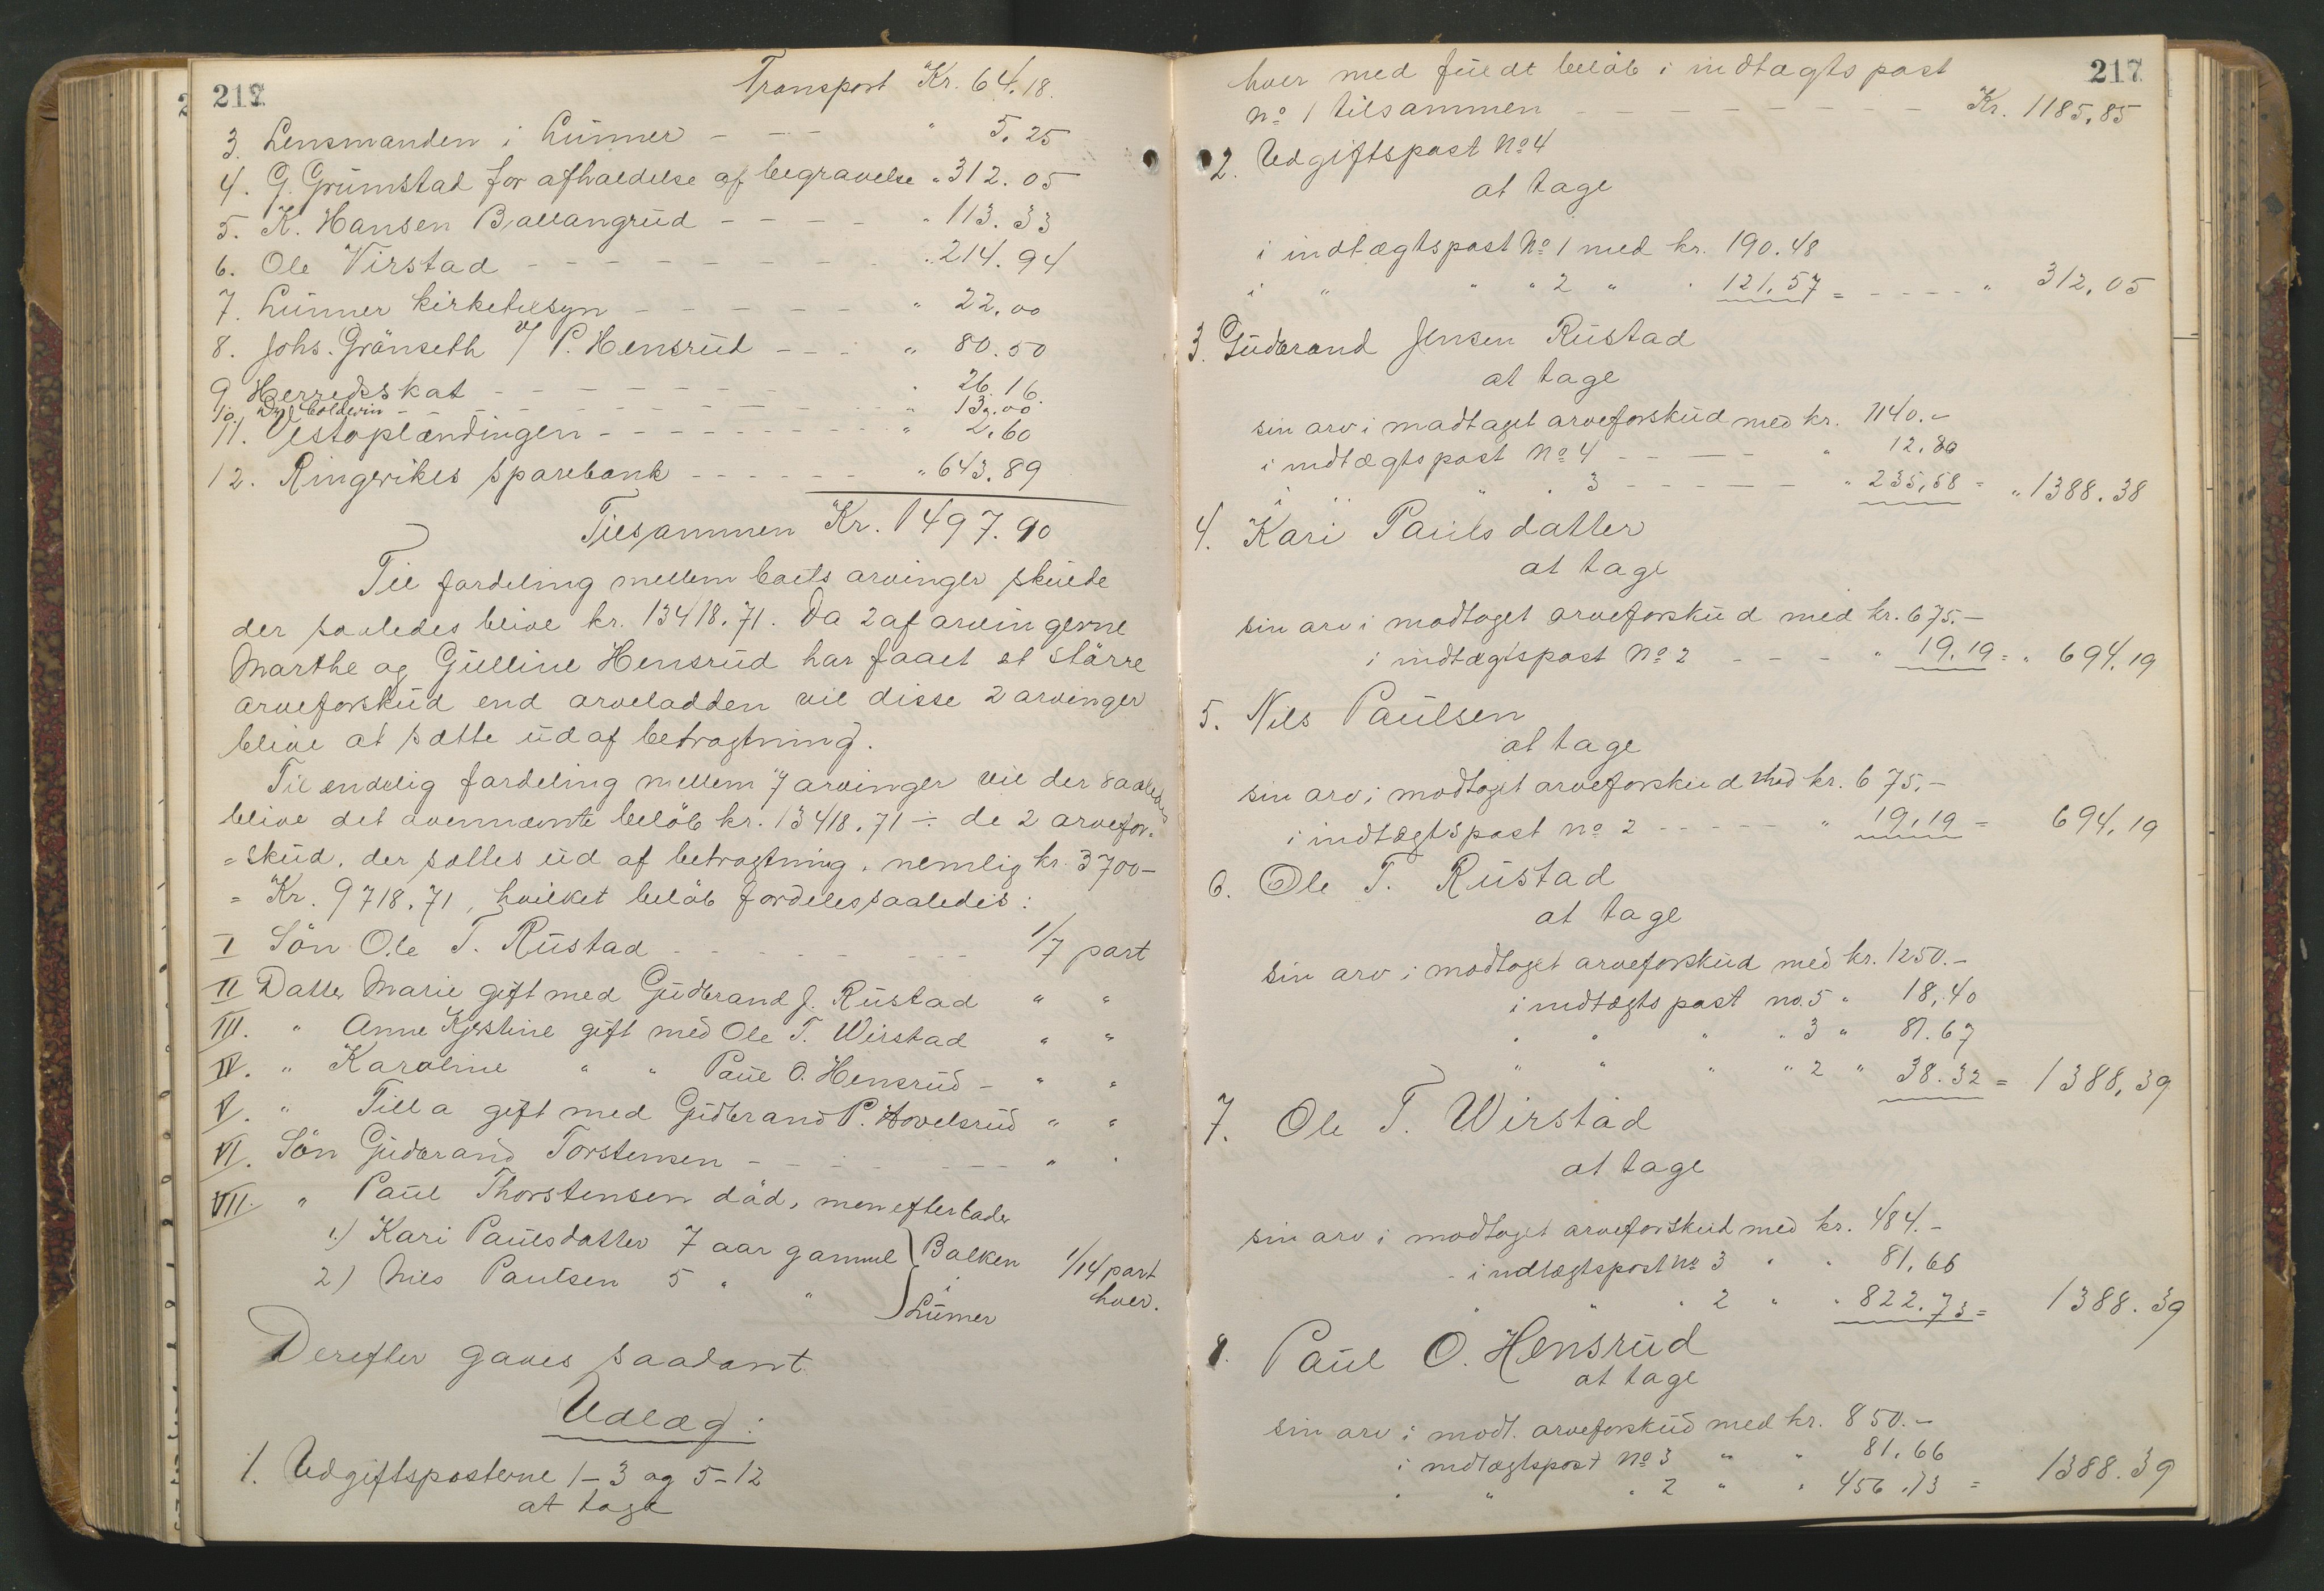 217
Transport Kr. 64.18.
3. Lensmanden i Lunner - - - " 5.25
4. G. Grumstad for afholdelse af begravelse " 312.05
5. K. Hansen Ballangrud - - - - " 113.33
6. Ole Virstad - - - - - - - - - " 214.94
7. Lunner kirketilsyn - - - - - - " 22.00
8. Johs. Grönseth v/ P. Hensrud - - - " 80.50
9 Herredsskat - - - - - - - - " 26.16.
10. Dyrl. Coldevin - - - - - - - - " 13.00
11. Vestoplændingen - - - - - - - - - " 2.60
12. Ringerikes sparebank - - - - - - " 643.89
Tilsammen Kr. 1497.90
Til fordeling mellem boets arvinger skulde
der saaledes blive kr. 13418.71. Da 2 af arvingerne
Marthe og Gulline Hensrud har faaet et större
arveforskud end arvelodden vil disse 2 arvinger
blive at sætte ud af betragtning.
Til endelig fordeling mellem 7 arvinger vil der saaledes
blive det ovennævnte belöb kr. 13418.71 ÷ de 2 arvefor-
= skud, der sættes ud af betragtning, nemlig kr. 3700-
= Kr. 9718.71, hvilket belöb fordeles saaledes:
I Sön Ole T. Rustad - - - - - - - - - 1/7 part
II Datter Marie gift med Gudbrand J. Rustad " "
III. " Anne Kjerstine gift med Ole T. Wirstad " "
IV. " Karoline " " Paul O. Hensrud - " "
V. " Tilla gift med Gudbrand P. Hovelsrud " "
VI. Sön Gudbrand Torstensen - - - - - - - " "
VII. " Paul Thorstensen död, men efterlader
1.) Kari Paulsdatter 7 aar gammel } Balken 1/14 part
2) Nils Paulsen 5 " " i hver.
Lunner
Derefter gaves saadant
Udlæg:
1. Udgiftsposterne 1-3 og 5-12
at tage
217
hver med fuldt belöb i indtægtspost
No 1 tilsammen - - - - - - - - - Kr. 1185,85
2. Udgiftspost No 4
at tage
i indtægtspost No 1 med kr. 190.48
i " " " 2 " " 121,57 = - - - - " 312,05
3. Gudbrand Jensen Rustad
at tage
sin arv i modtaget arveforskud med kr. 1140.-
i indtægtspost No 4 - - - - - " 12.80
i " " " 3 - - - - - " 235,58 = " 1388.38
4. Kari Paulsdatter
at tage
sin arv i modtaget arveforskud med kr. 675.-
i indtægtspost No 2 - - - - " 19,19 = " 694,19
5. Nils Paulsen
at tage
sin arv i modtaget arveforskud med kr. 675,-
i indtægtspost no 2 - - - - - " 19,19 = 694,19
6. Ole T. Rustad
at tage
sin arv i modtaget arveforskud med kr. 1250.-
i indtægtspost no. 5 " 18,40
" " " " 3 " 81.67
" " " " 2 " 38.32 = 1388,39
7. Ole T. Wirstad
at tage
sin arv i modtaget arveforskud med kr. 484.-
- i indtægtspost No 3 " " 81,66
" " " 2 " " 822.73 = 1388.39
8. Paul O. Hensrud
at tage
sin arv i modt. arveforskud med kr. 850.-
i indtægtspost No 3 " " 81,66
" " " 2 " " 456.73 = 1388.39